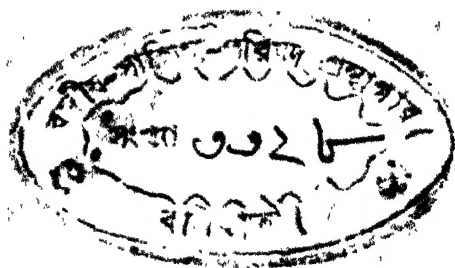 বঙ্গীয়-সাহিত্য-পরিষদ গ্রন্থাগার।
সংখ্যা ৩৩২৮